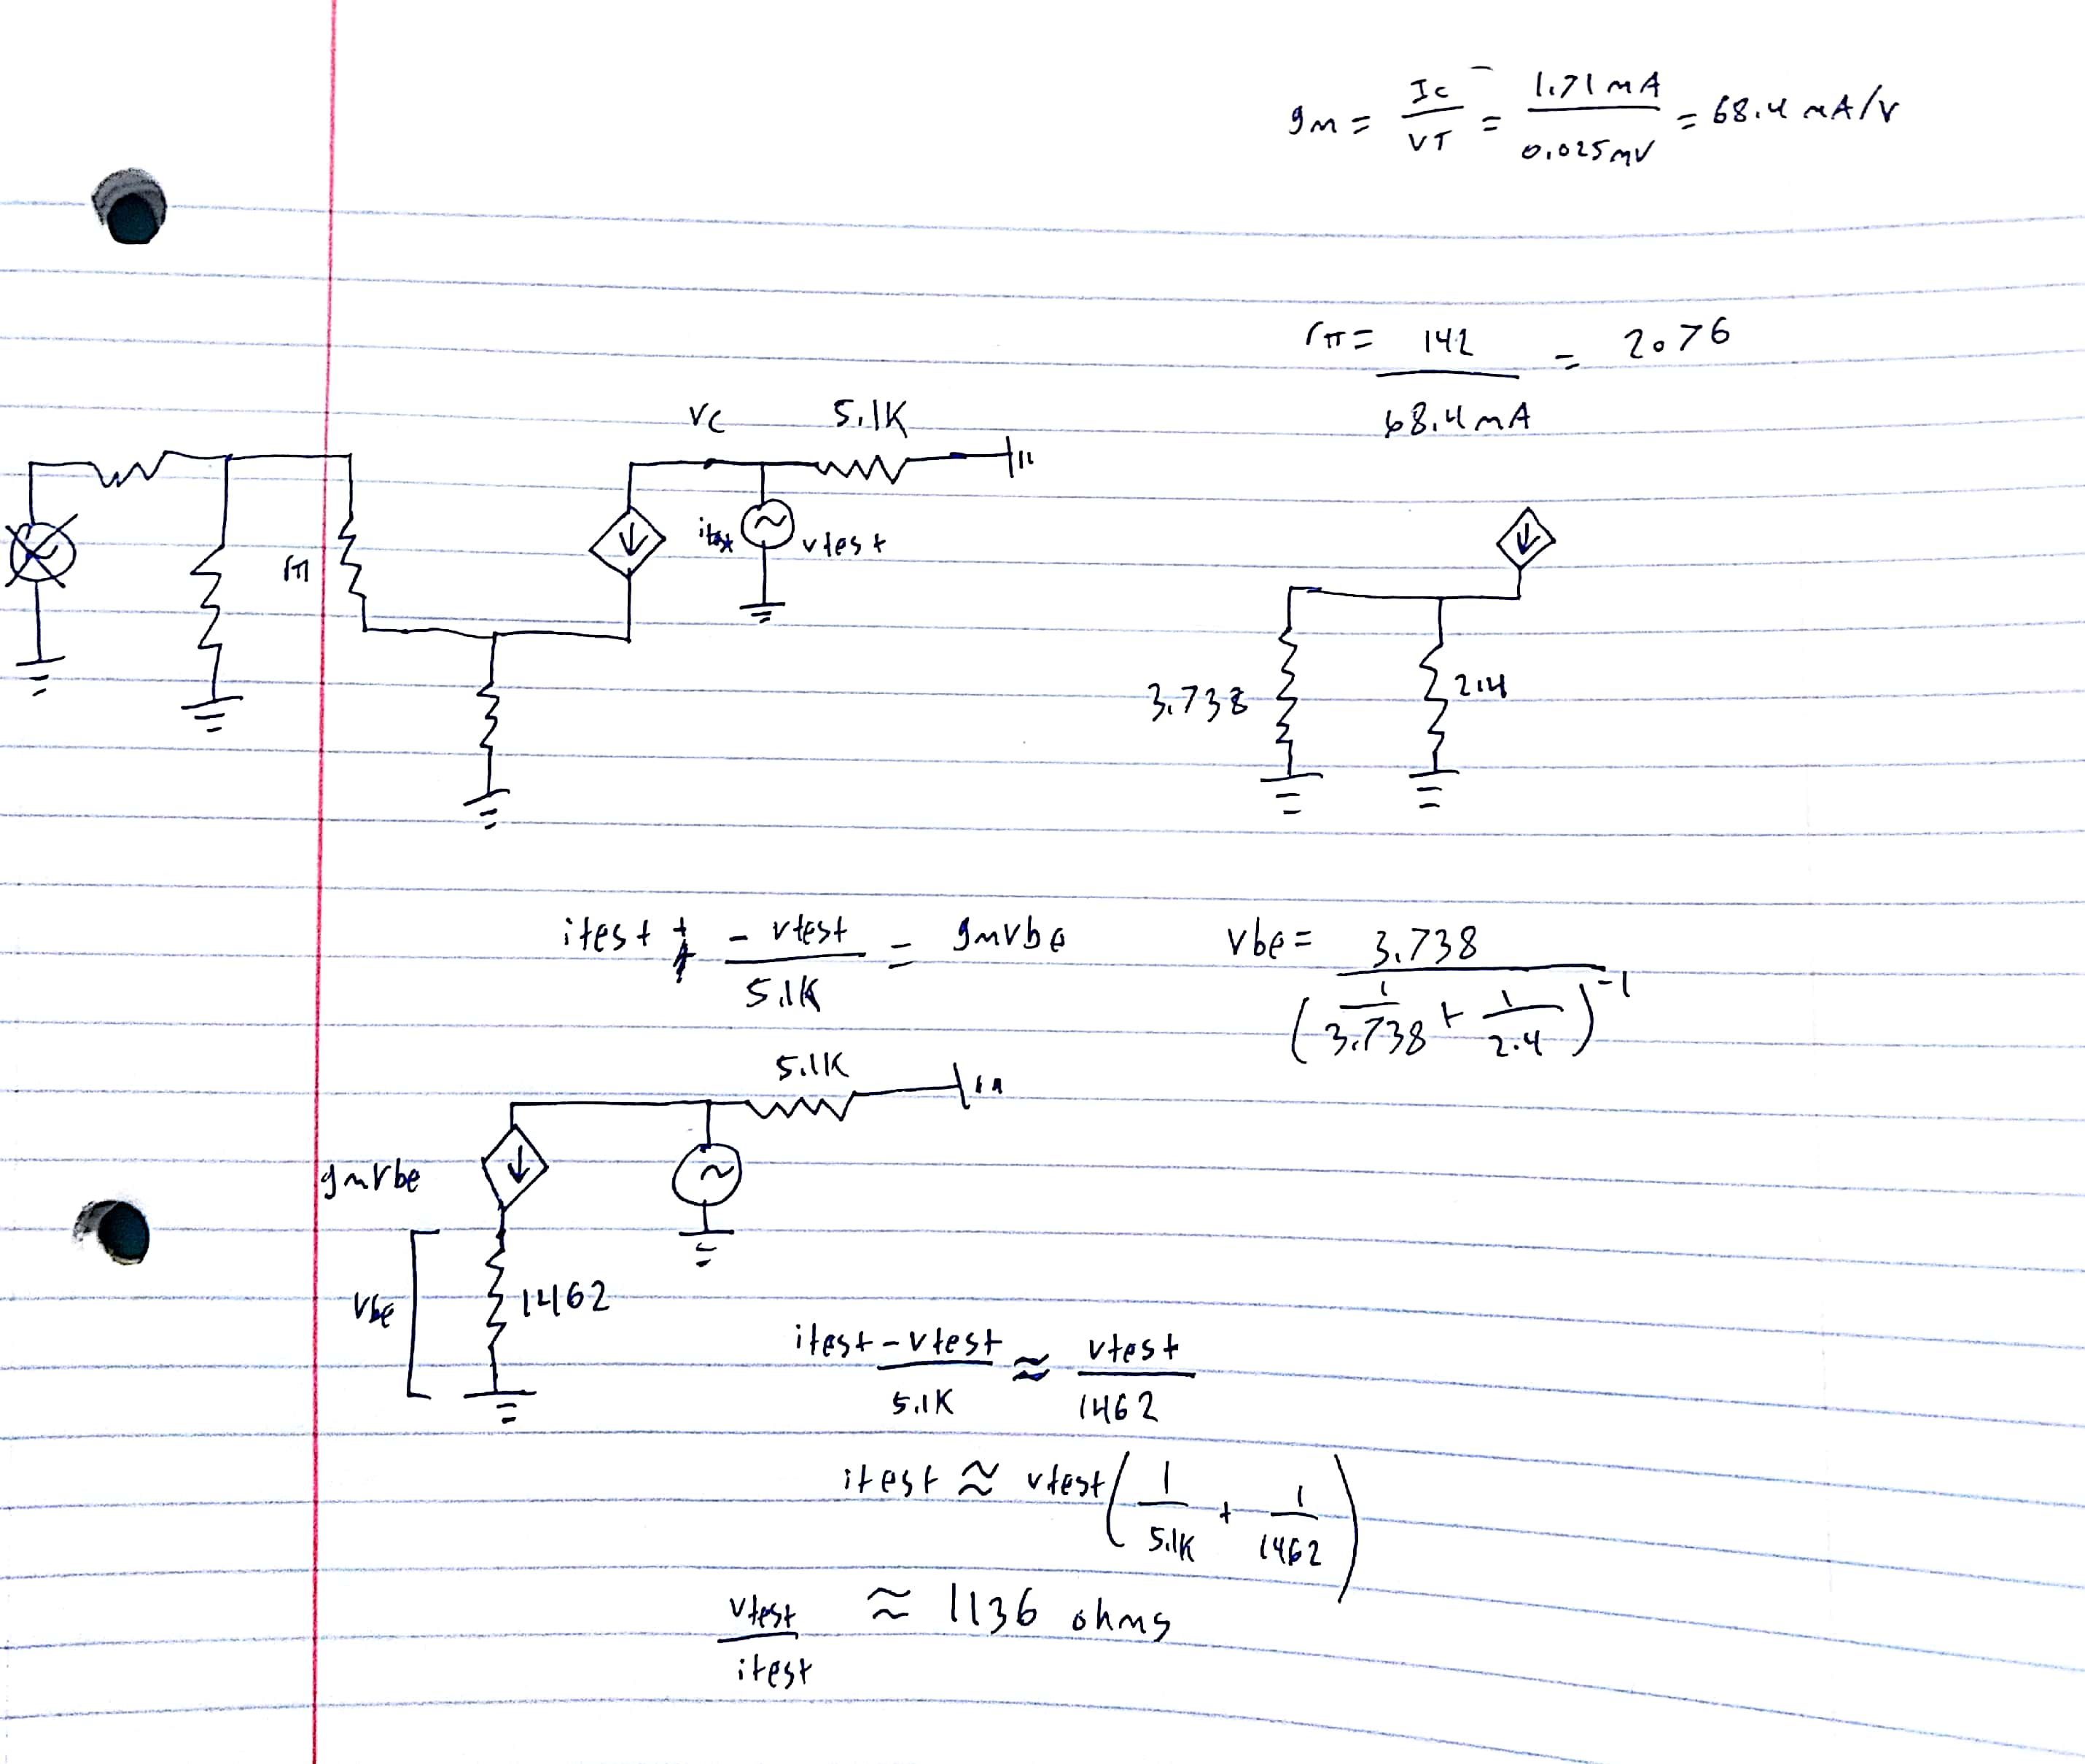 gm = Ic/VT = 1.71 mA/0.025 mV = 68.4 mA/V
rπ = 142/68.4 mA = 2.076
VC 5.1K
rπ itest vtest
3.738 2.4
itest + - vtest/5.1K = gmvbe vbe = 3.738/(1/3.738 + 1/2.4)^-1
5.1K
gmvbe
Vbe 1462
itest - vtest/5.1K ≈ vtest/1462
itest ≈ vtest(1/5.1K + 1/1462)
vtest/itest ≈ 1136 ohms